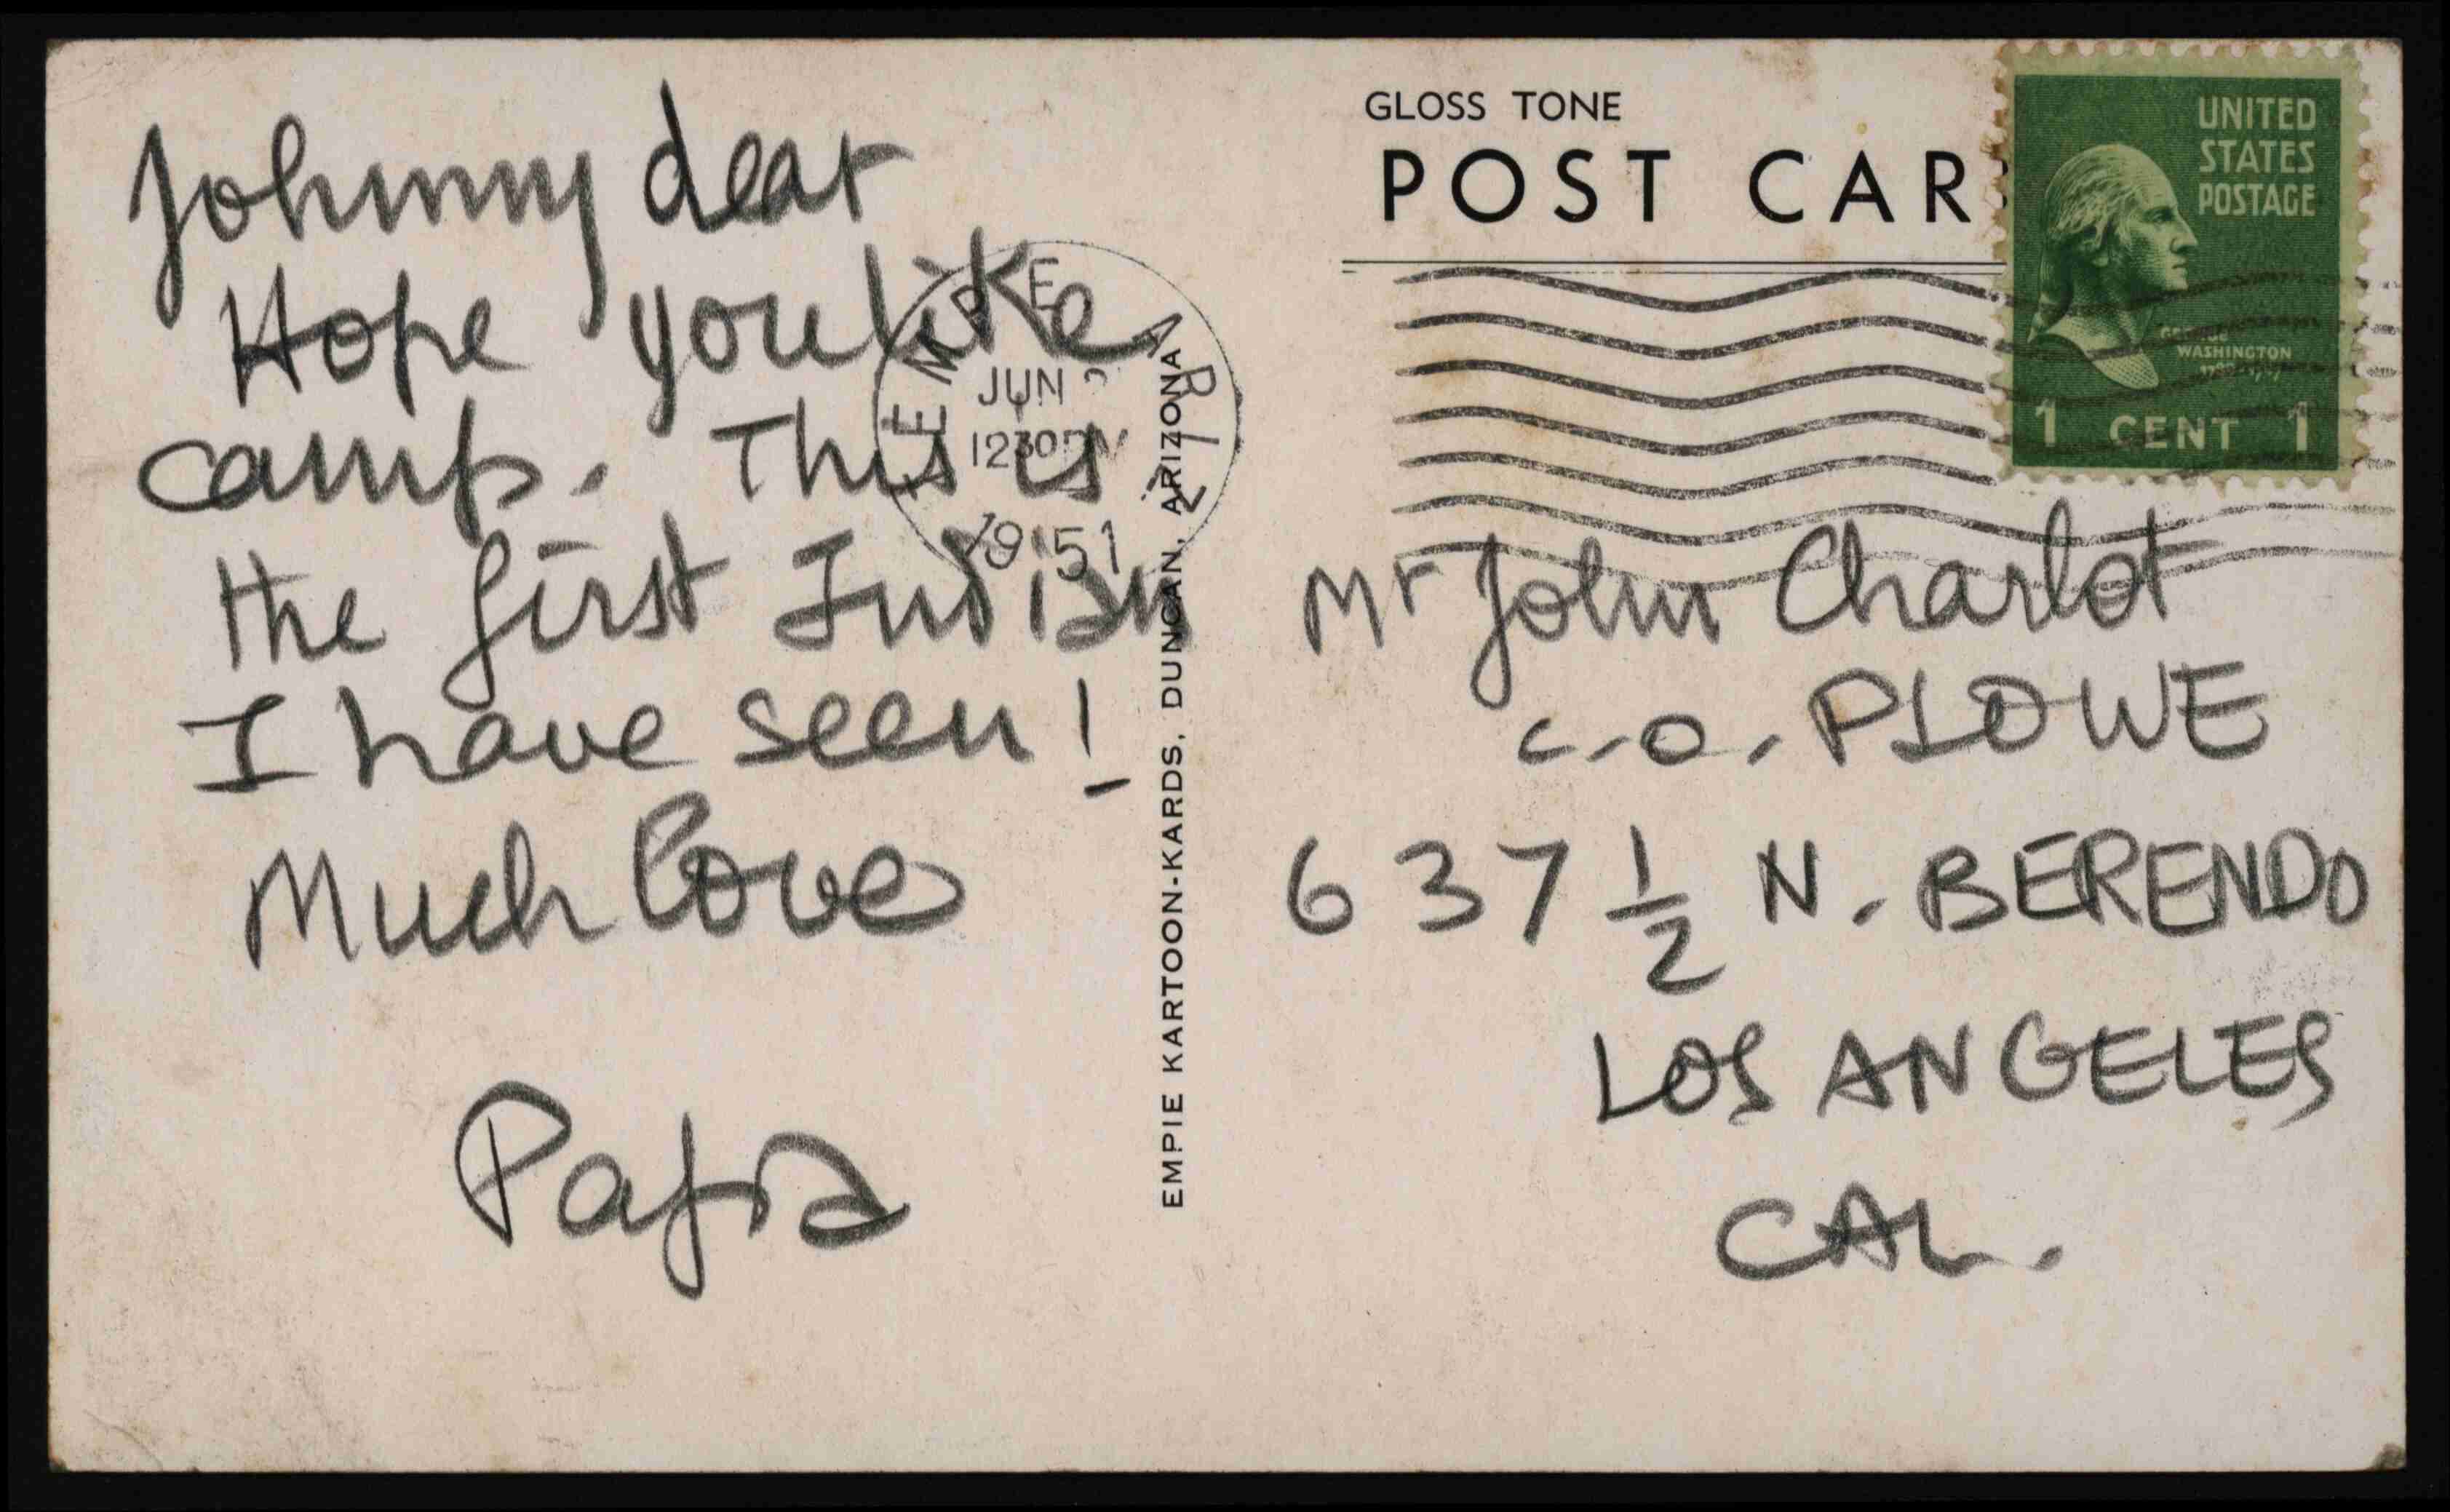 Johnny dear
Hope you like
camp. This is
the first Indian
I have seen!
Much love
Papa
TEMPE ARIZ
JUN
1230 PM
1951
EMPIE KARTOON-KARDS, DUNCAN, ARIZONA
GLOSS TONE
POST CAR
UNITED
STATES
POSTAGE
GEORGE
WASHINGTON
1 CENT 1
Mr John Charlot
c.o. PLOWE
637 1/2 N. BERENDO
LOS ANGELES
CAL.